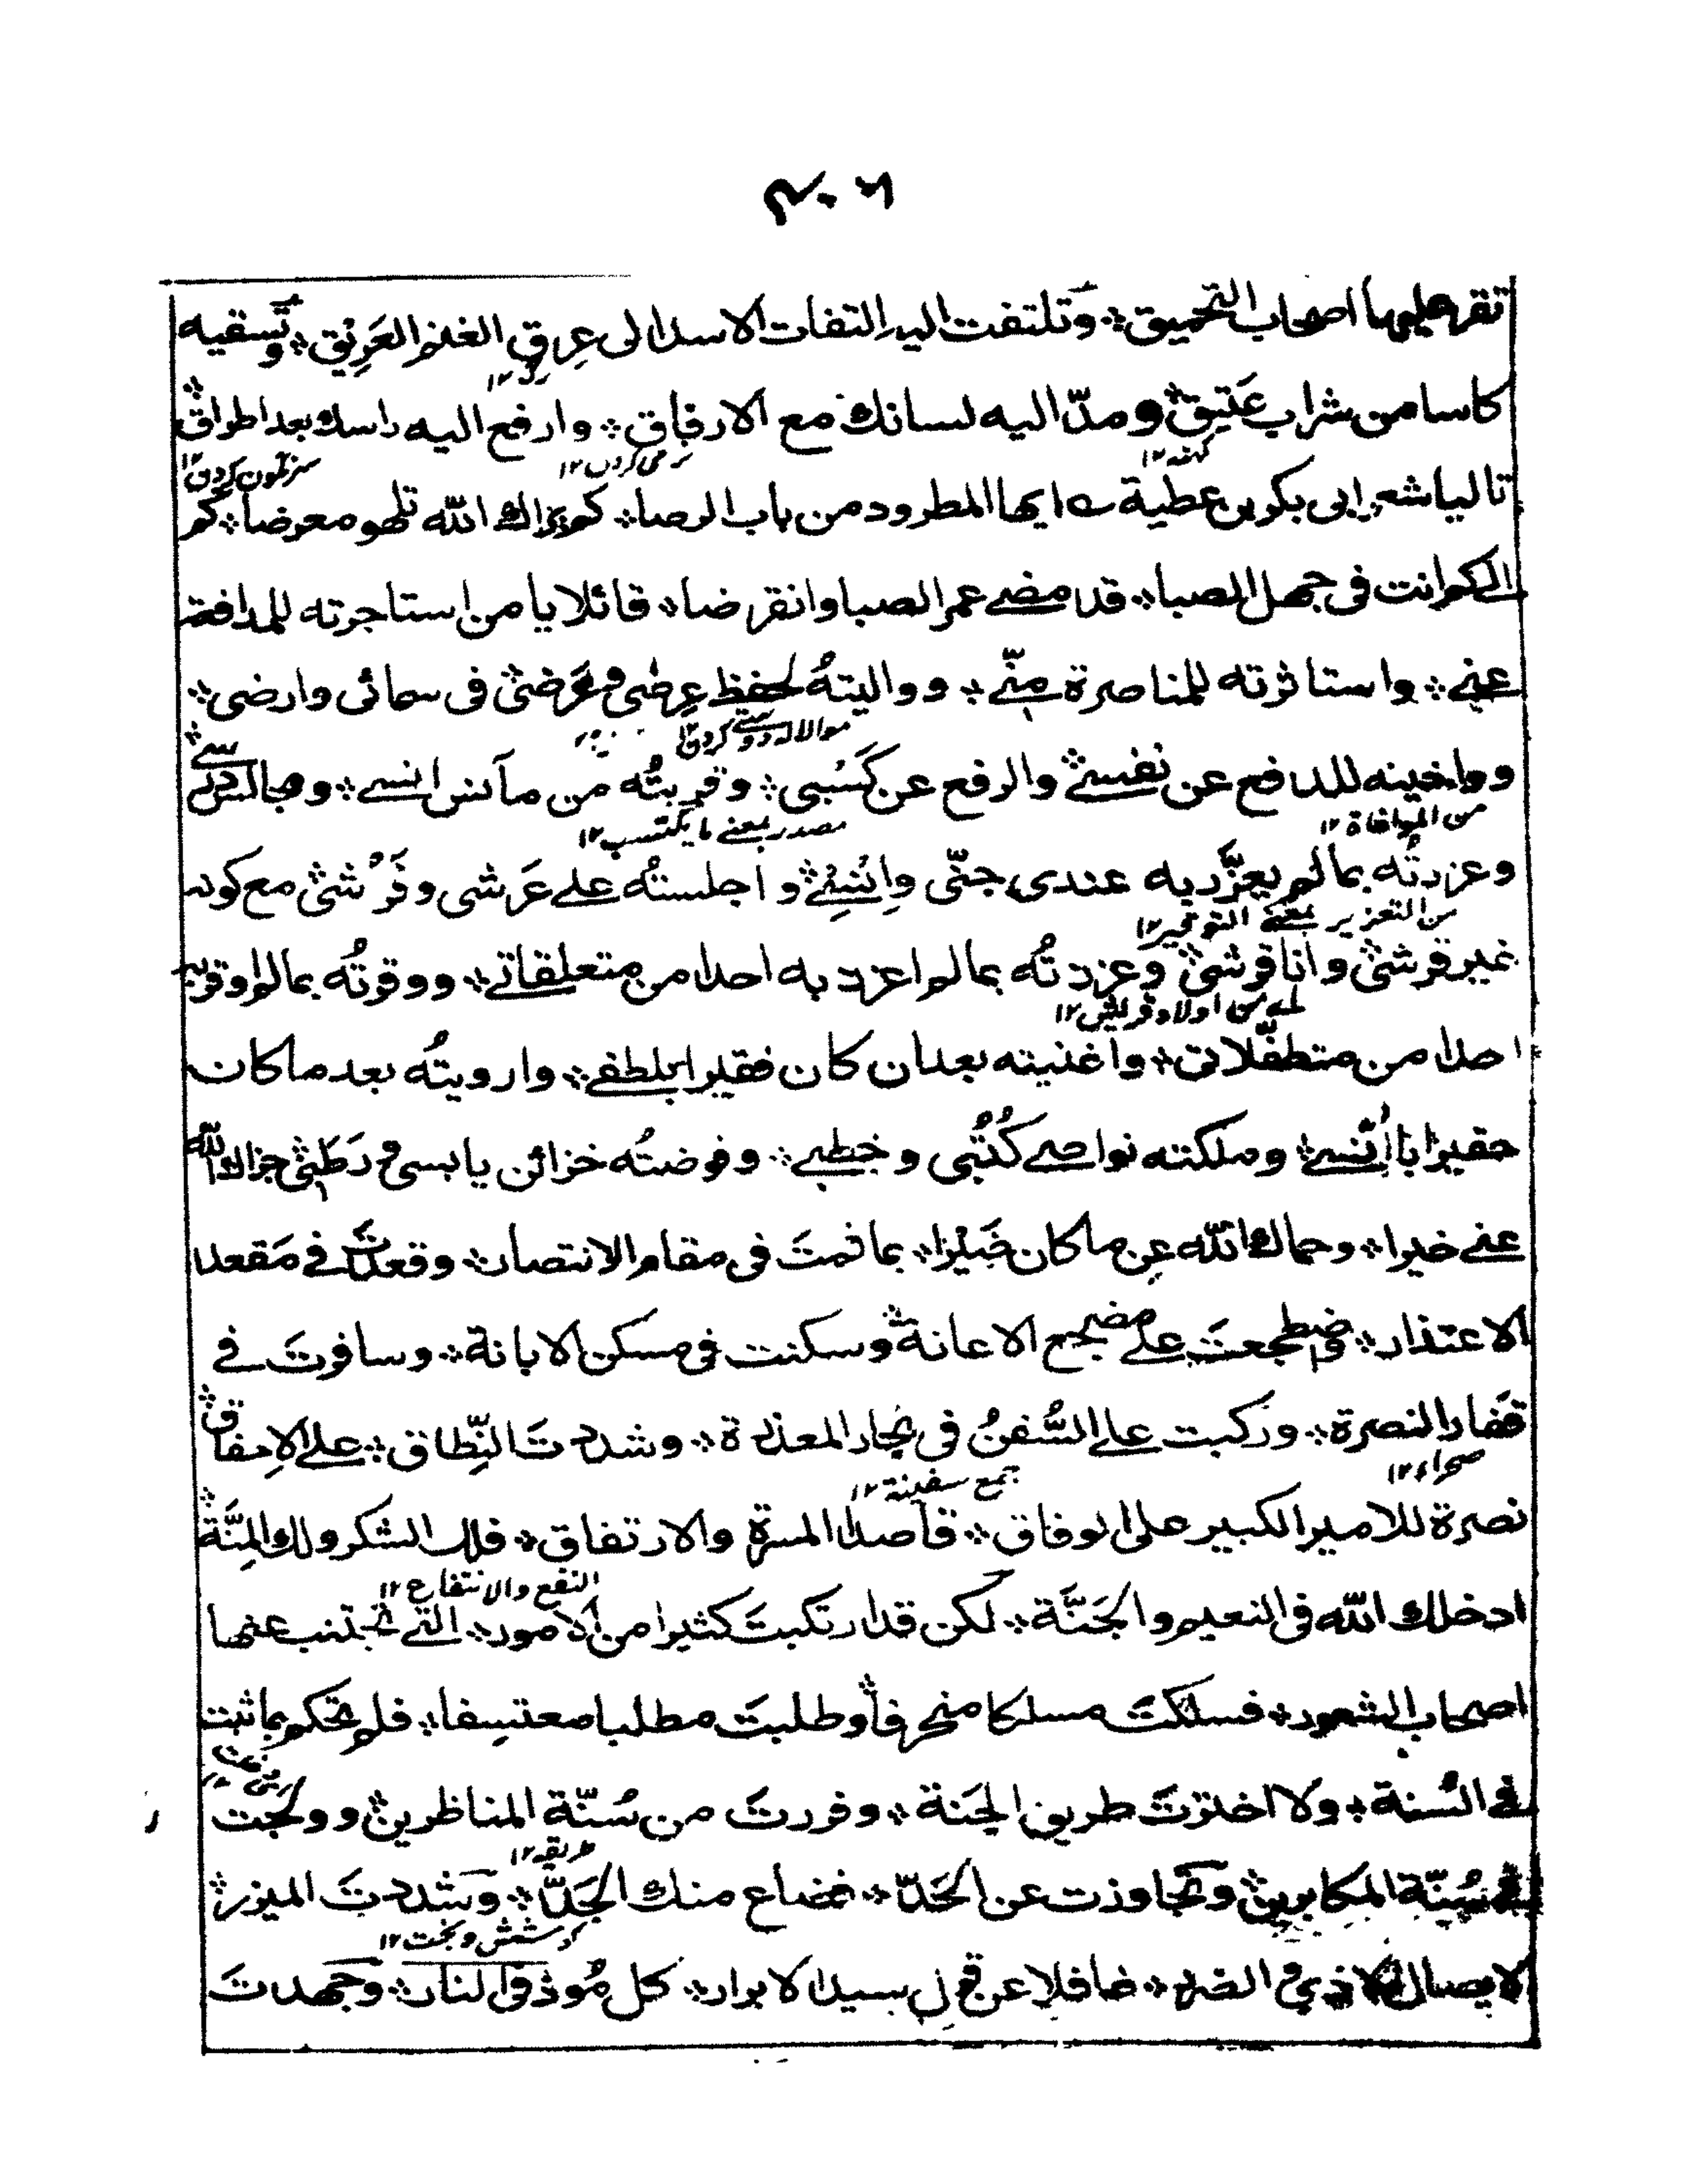 ٤٠٦
تقر عليها اصحاب التحميق ؞ وتلتفت اليه التفات الاسد الى عِرق الغنم العَرِيْق ؞ وتسقيه
رگ ١٢
كاسا من شراب عَتيق ؞ ومدّ اليه لسانك مع الارفاق ؞ وارفع اليه راسك بعد اطراق ؞
كهنه ١٢ نرمی کردن ١٢ سرنگون کردن ١٢
تاليا شعر ابى بكر بن عطية ؎ ايها المطرود من باب الرضا ؞ كم يراك الله تلهو معرضا ؞ كم
الى كم انت فى جهل الصبا ؞ قد مضى عمر الصبا وانقرضا ؞ قائلا يا من استاجرته للمدافعة
عنى ؞ واستاثرته للمناصرة منّى ؞ وواليتهُ لحفظ عِرضى وعَرَضى ؞ فى سمائى وارضى ؞
موالاة دوستی کردن ١٢
وواخيته للدفع عن نفسى ؞ والرفع عن كَسْبى ؞ وقربتُه من مآنس انسى ؞ ومجالس درسى ؞
من المواخاة ١٢ مصدر بمعنى ما يكتسب ١٢
وعزرتُه بما لم يعزَّر به عندى جنّى وانسى ؞ واجلستُه على عَرشى وفَرْشى ؞ مع كونه
من التعزير بمعنى التوقير ١٢
غير قرشى ؞ وانا قرشى ؞ وعزرتُه بما لم اعزر به احدا من متعلقاتى ؞ ووقرتُه بما لم اوقر به
اى من اولاد قريش ١٢
احدا من متطفّلاتى ؞ واغنيته بعد ان كان فقيرا بلطفى ؞ وارويتُه بعد ما كان
حقيرا بانسى ؞ وملكته نواصى كُتُبى وخطبى ؞ وفوضتُه خزائن يابسى ورَطَبى ؞ جزاك الله
عنى خيرا ؞ وحماك الله عن ما كان ضَيْرا ؞ بما قمتَ فى مقام الانتصار ؞ وقعدتَ فى مَقعد
الاعتذار ؞ واضطجعتَ على مضجع الاعانة ؞ وسكنت فى مسكن الابانة ؞ وسافرتَ فى
قفار النصرة ؞ وركبت على السُّفنُ فى بحار المعذرة ؞ وشددتَ النِّطاق ؞ على الاِحقاق ؞
صحراء ١٢ جمع سفينة ١٢
نصرة للامير الكبير على الوفاق ؞ قاصدا المسرة والارتفاق ؞ فلك الشكر ولك المِنَّة ؞
النفع والانتفاع ١٢
ادخلك الله فى النعيم والجَنَّة ؞ لكن قد ارتكبتَ كثيرا من الامور ؞ التى تجتنب عنها
اصحاب الشعور ؞ فسلكتَ مسلكا منحرفا ؞ وطلبتَ مطلبا معتسفا ؞ فلم تحكم بما ثبت
فى السُنة ؞ ولا اخترتَ طريق الجَنة ؞ وفررتَ من سُنّة المناظرين ؞ وولجت
طريقه ١٢
فى سُنّة المكابرين ؞ وتجاوزت عن الحَدّ ؞ فضاع منك الجَدّ ؞ وشددتَ الميزر ؞
كوشش وبخت ١٢
لايصال الاذى والضرر ؞ غافلا عن قول سيد الابرار ؞ كل مُوذ فى النار ؞ وجهدتَ